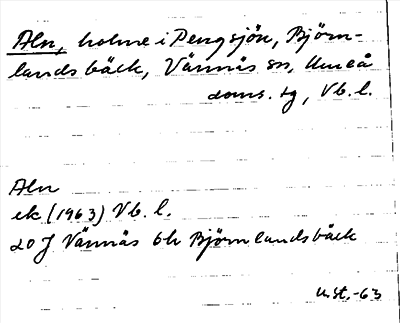 Aln, holme i Pengsjön, Björn-
landsbäck, Vännäs sn, Umeå
doms. tg, Vb. l.
Aln
ek (1963) Vb. l.
20 J Vännäs 6h Björnlandsbäck
U.St.-63